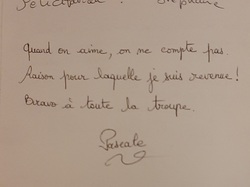 Quand on aime, on ne compte pas.
Raison pour laquelle je suis revenue !
Bravo à toute la troupe.
Pascale